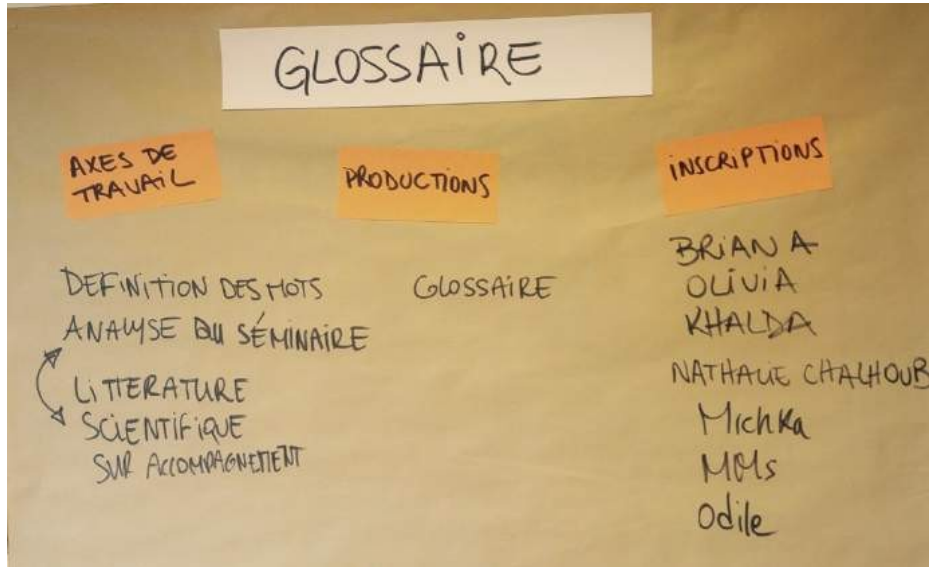 GLOSSAiRE
AXES DE
TRAVAiL
PRODUCTIONS
iNSCRiPTiONS
DEFINITION DES MOTS
ANALYSE DU SÉMINAIRE
LiTTERATURE
SCiENTiFiQUE
SUR ACCOMPAGNEMENT
GLOSSAIRE
BRiAN A
OLiViA
KHALDA
NATHALIE CHALHOUB
Michka
Odile